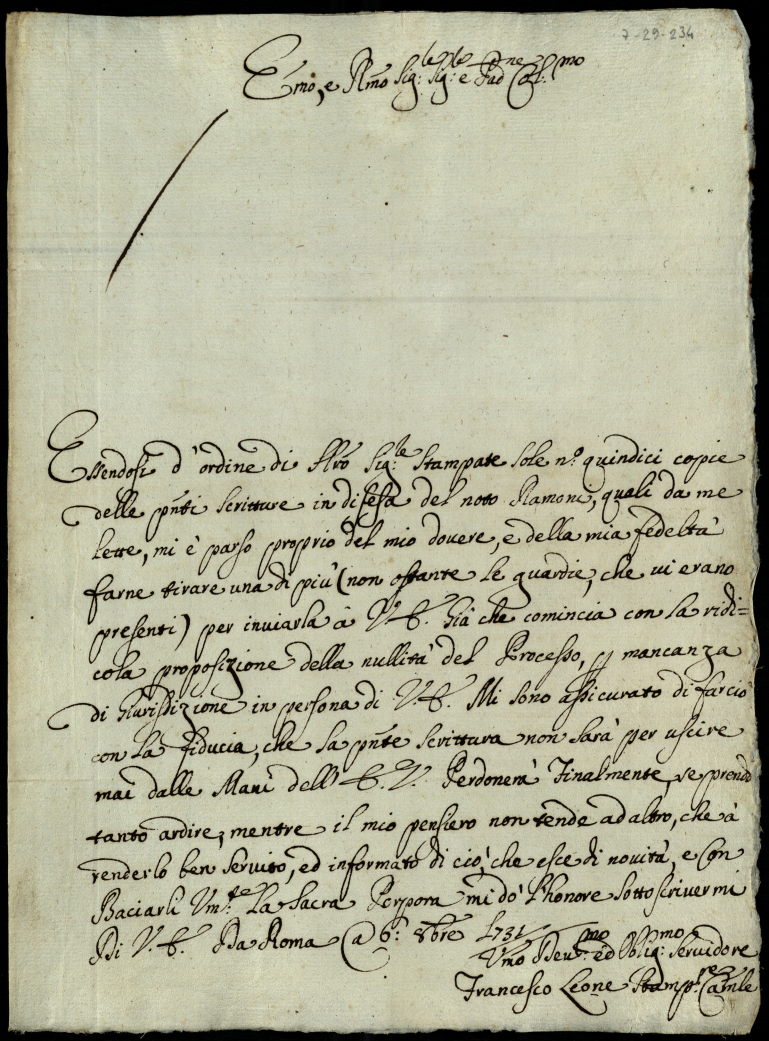 7-29-234
Emo, e Rmo Sig:le Sig:le e Pad:ne Col:mo
Essendosi d'ordine di Nro Sig:le Stampate sole nº quindici copie
delle pñti scritture in difesa del noto Ramoni, quali da me
lette, mi è parso proprio del mio dovere, e della mia fedeltà
farne tirare una di più (non ostante le guardie, che vi erano
presenti) per inviarla à V. E. Già che comincia con la ridi=
cola proposizione della nullità del Processo, p mancanza
di Giurisdizione in persona di V. E. Mi sono assicurato di farcio
con la fiducia, che la pñte scrittura non sarà per uscire
mai dalle Mani dell' E. V. Perdonerà Finalmente, se prendo
tanto ardire, mentre il mio pensiero non tende ad altro, che à
renderlo ben servito, ed informato di ciò, che esce di novità, e Con
Baciarli Vm:te La Sacra Porpora mi do' l'honore sottoscrivermi
Di V. E. Da Roma @ 6: 8bre 1731
Vmo Deu:mo ed Oblig:mo Servidore
Francesco Leone Stamp:re Camle